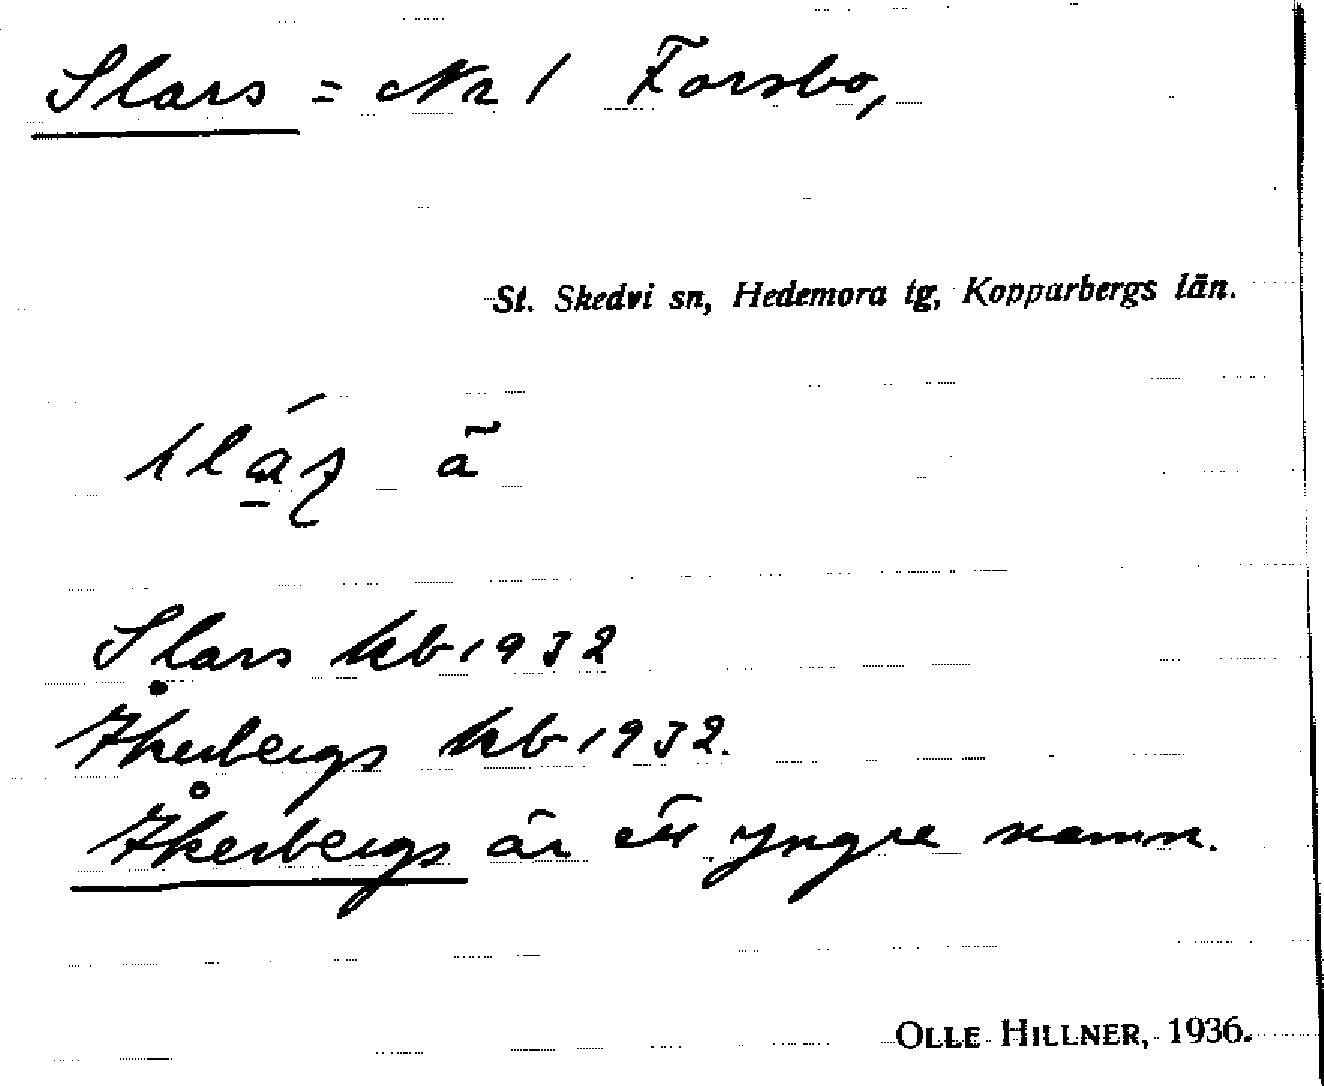 Slars = Nr 1 Forsbo,
St. Skedvi sn, Hedemora tg, Kopparbergs län.
ã
Slars kb 1932
Åkerbergs kb 1932.
Åkerbergs är ett yngre namn.
OLLE HILLNER, 1936.